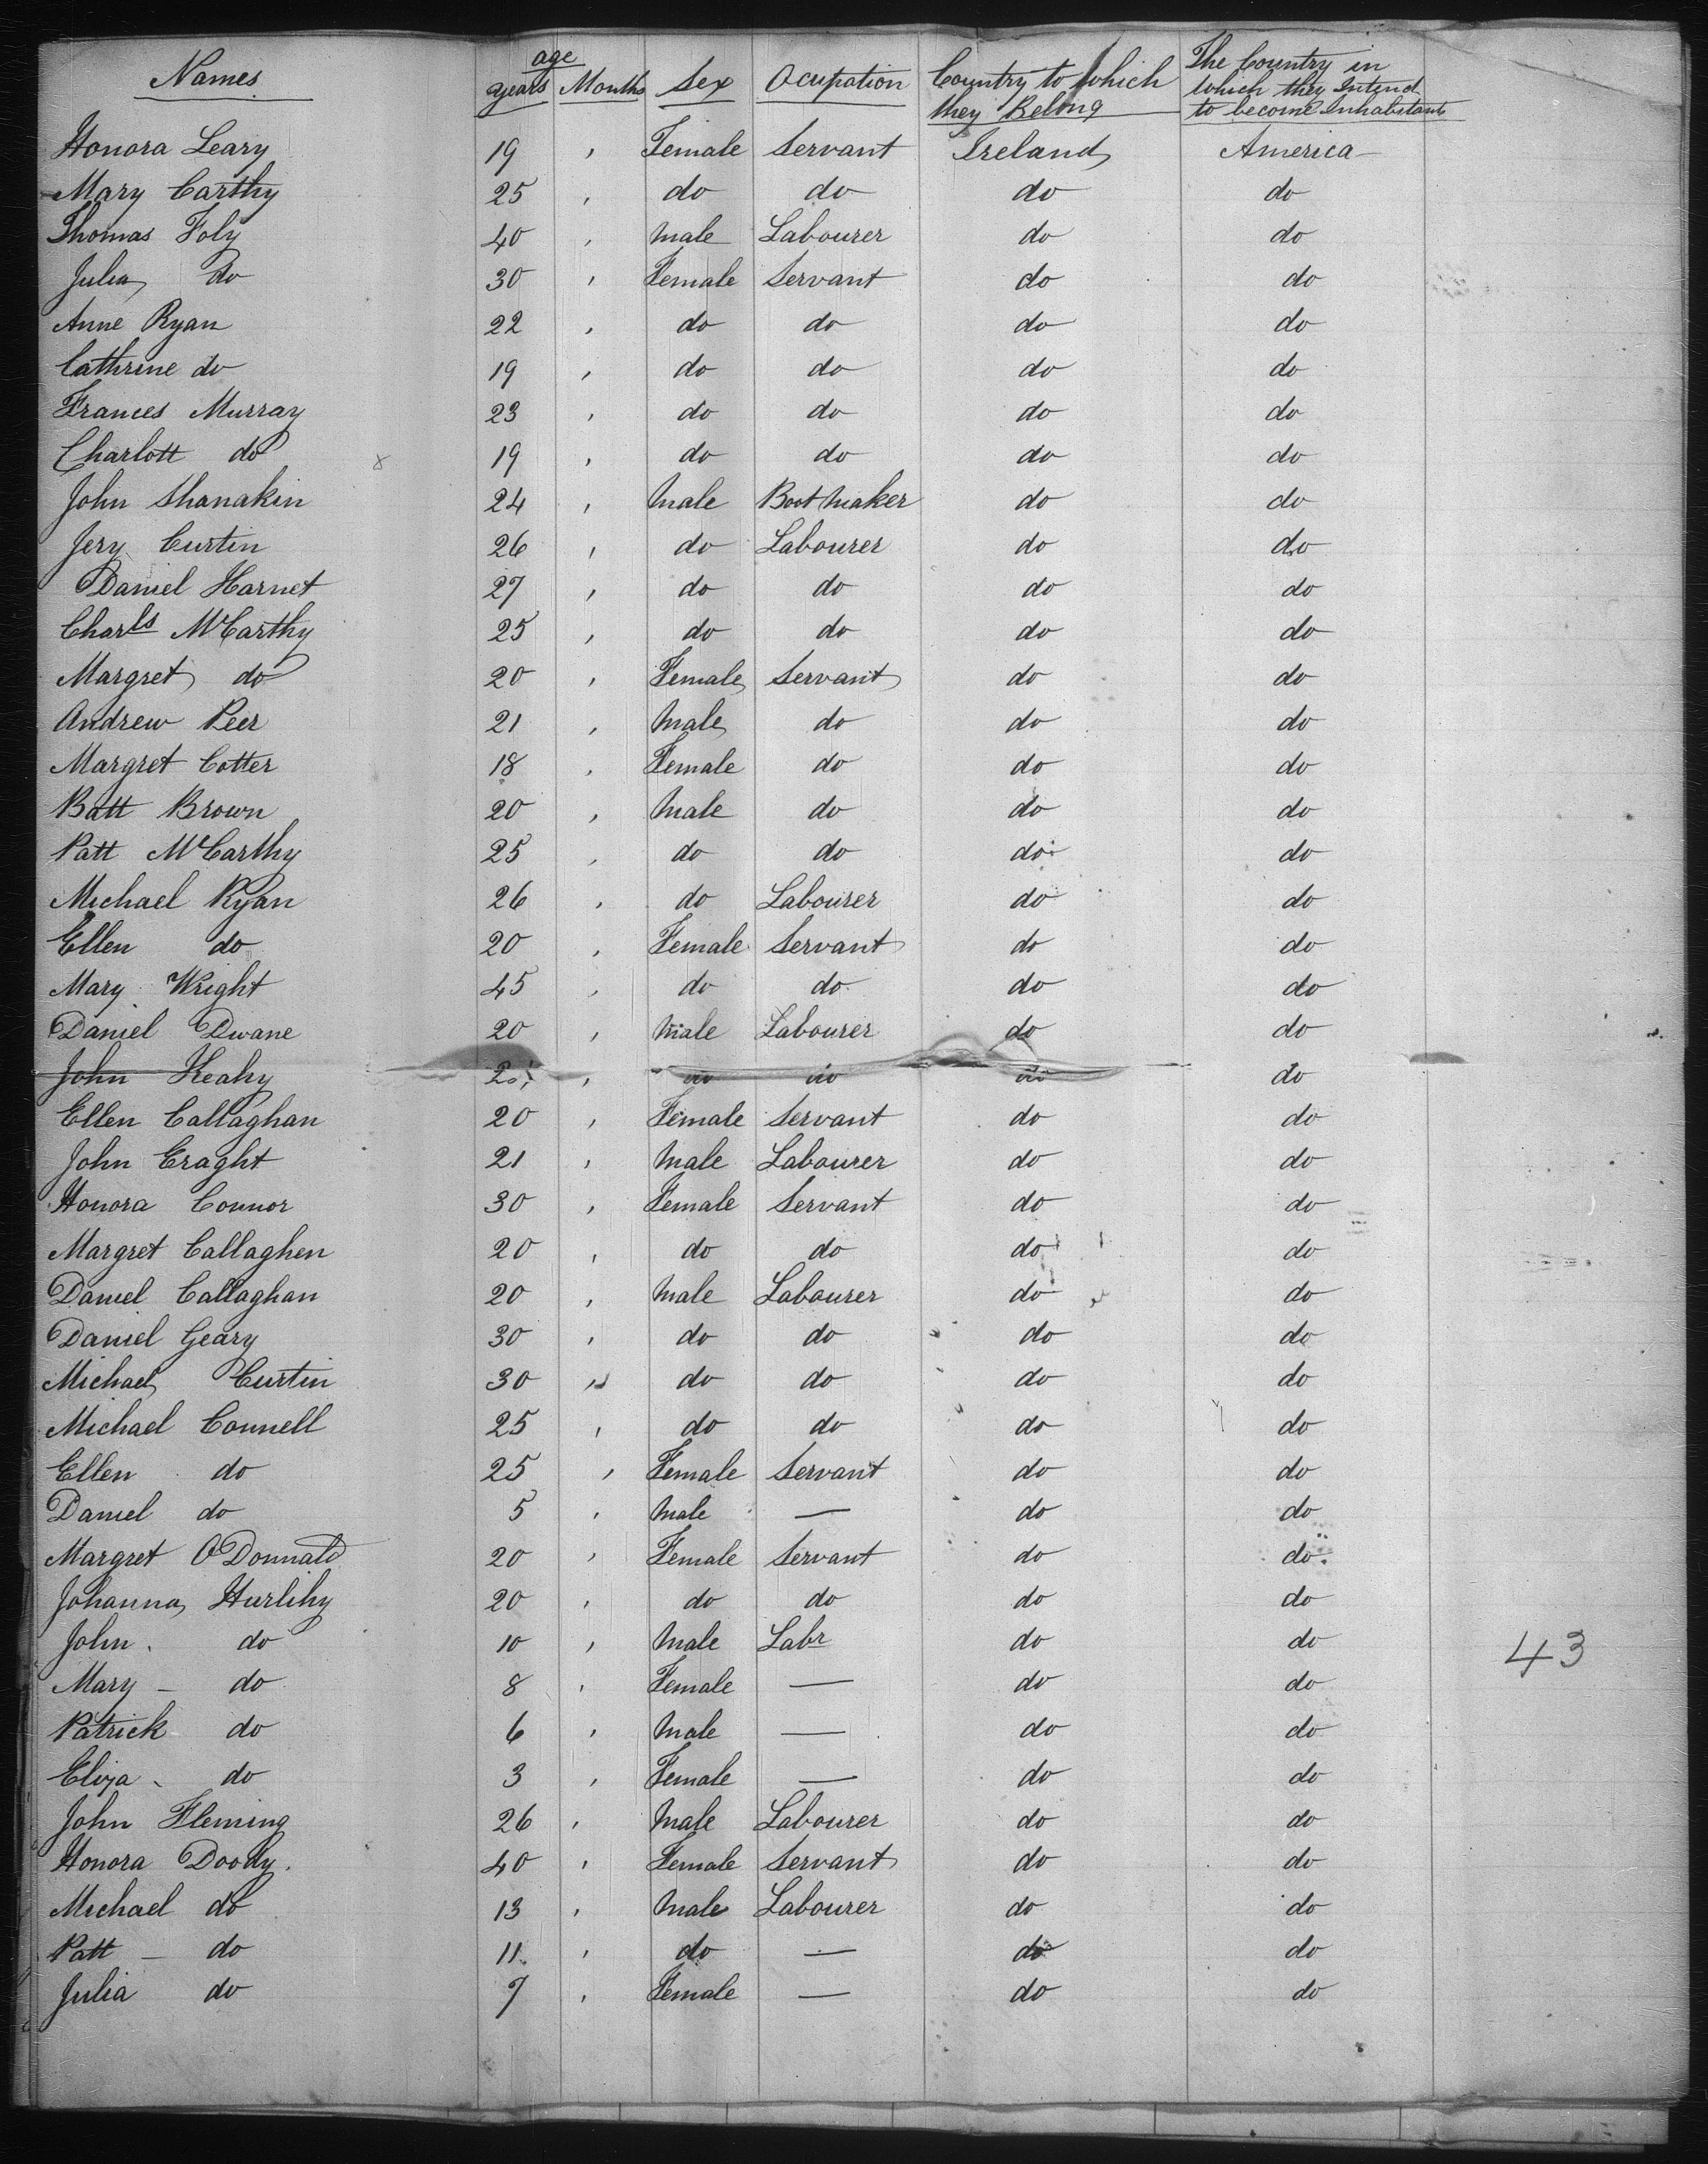 Names age years Months Sex Ocupation Country to which they Belong The Country in which they Intend to become Inhabitants
Honora Leary 19 , Female Servant Ireland America
Mary Carthy 25 , do do do do
Thomas Foly 40 , Male Labourer do do
Julia do 30 , Female Servant do do
Anne Ryan 22 , do do do do
Cathrine do 19 , do do do do
Frances Murray 23 , do do do do
Charlott do 19 , do do do do
John Shanakin 24 , Male Boot Maker do do
Jery Curtin 26 , do Labourer do do
Daniel Harnet 27 , do do do do
Charls McCarthy 25 , do do do do
Margret do 20 , Female Servant do do
Andrew Peer 21 , Male do do do
Margret Cotter 18 , Female do do do
Batt Brown 20 , Male do do do
Patt McCarthy 25 , do do do do
Michael Ryan 26 , do Labourer do do
Ellen do 20 , Female Servant do do
Mary Wright 45 , do do do do
Daniel Dwane 20 , Male Labourer do do
John Keahy , do do do do
Ellen Callaghan 20 , Female Servant do do
John Craght 21 , Male Labourer do do
Honora Connor 30 , Female Servant do do
Margret Callaghen 20 , do do do do
Daniel Callaghan 20 , Male Labourer do do
Daniel Geary 30 , do do do do
Michael Curtin 30 , do do do do
Michael Connell 25 , do do do do
Ellen do 25 , Female Servant do do
Daniel do 5 , Male — do do
Margret O Donnald 20 , Female Servant do do
Johanna Hurlihy 20 , do do do do
John do 10 , Male Labr do do
43
Mary – do 8 , Female — do do
Patrick do 6 , Male — do do
Eliza do 3 , Female — do do
John Fleming 26 , Male Labourer do do
Honora Doody 40 , Female Servant do do
Michael do 13 , Male Labourer do do
Patt – do 11 , do — do do
Julia do 7 , Female — do do